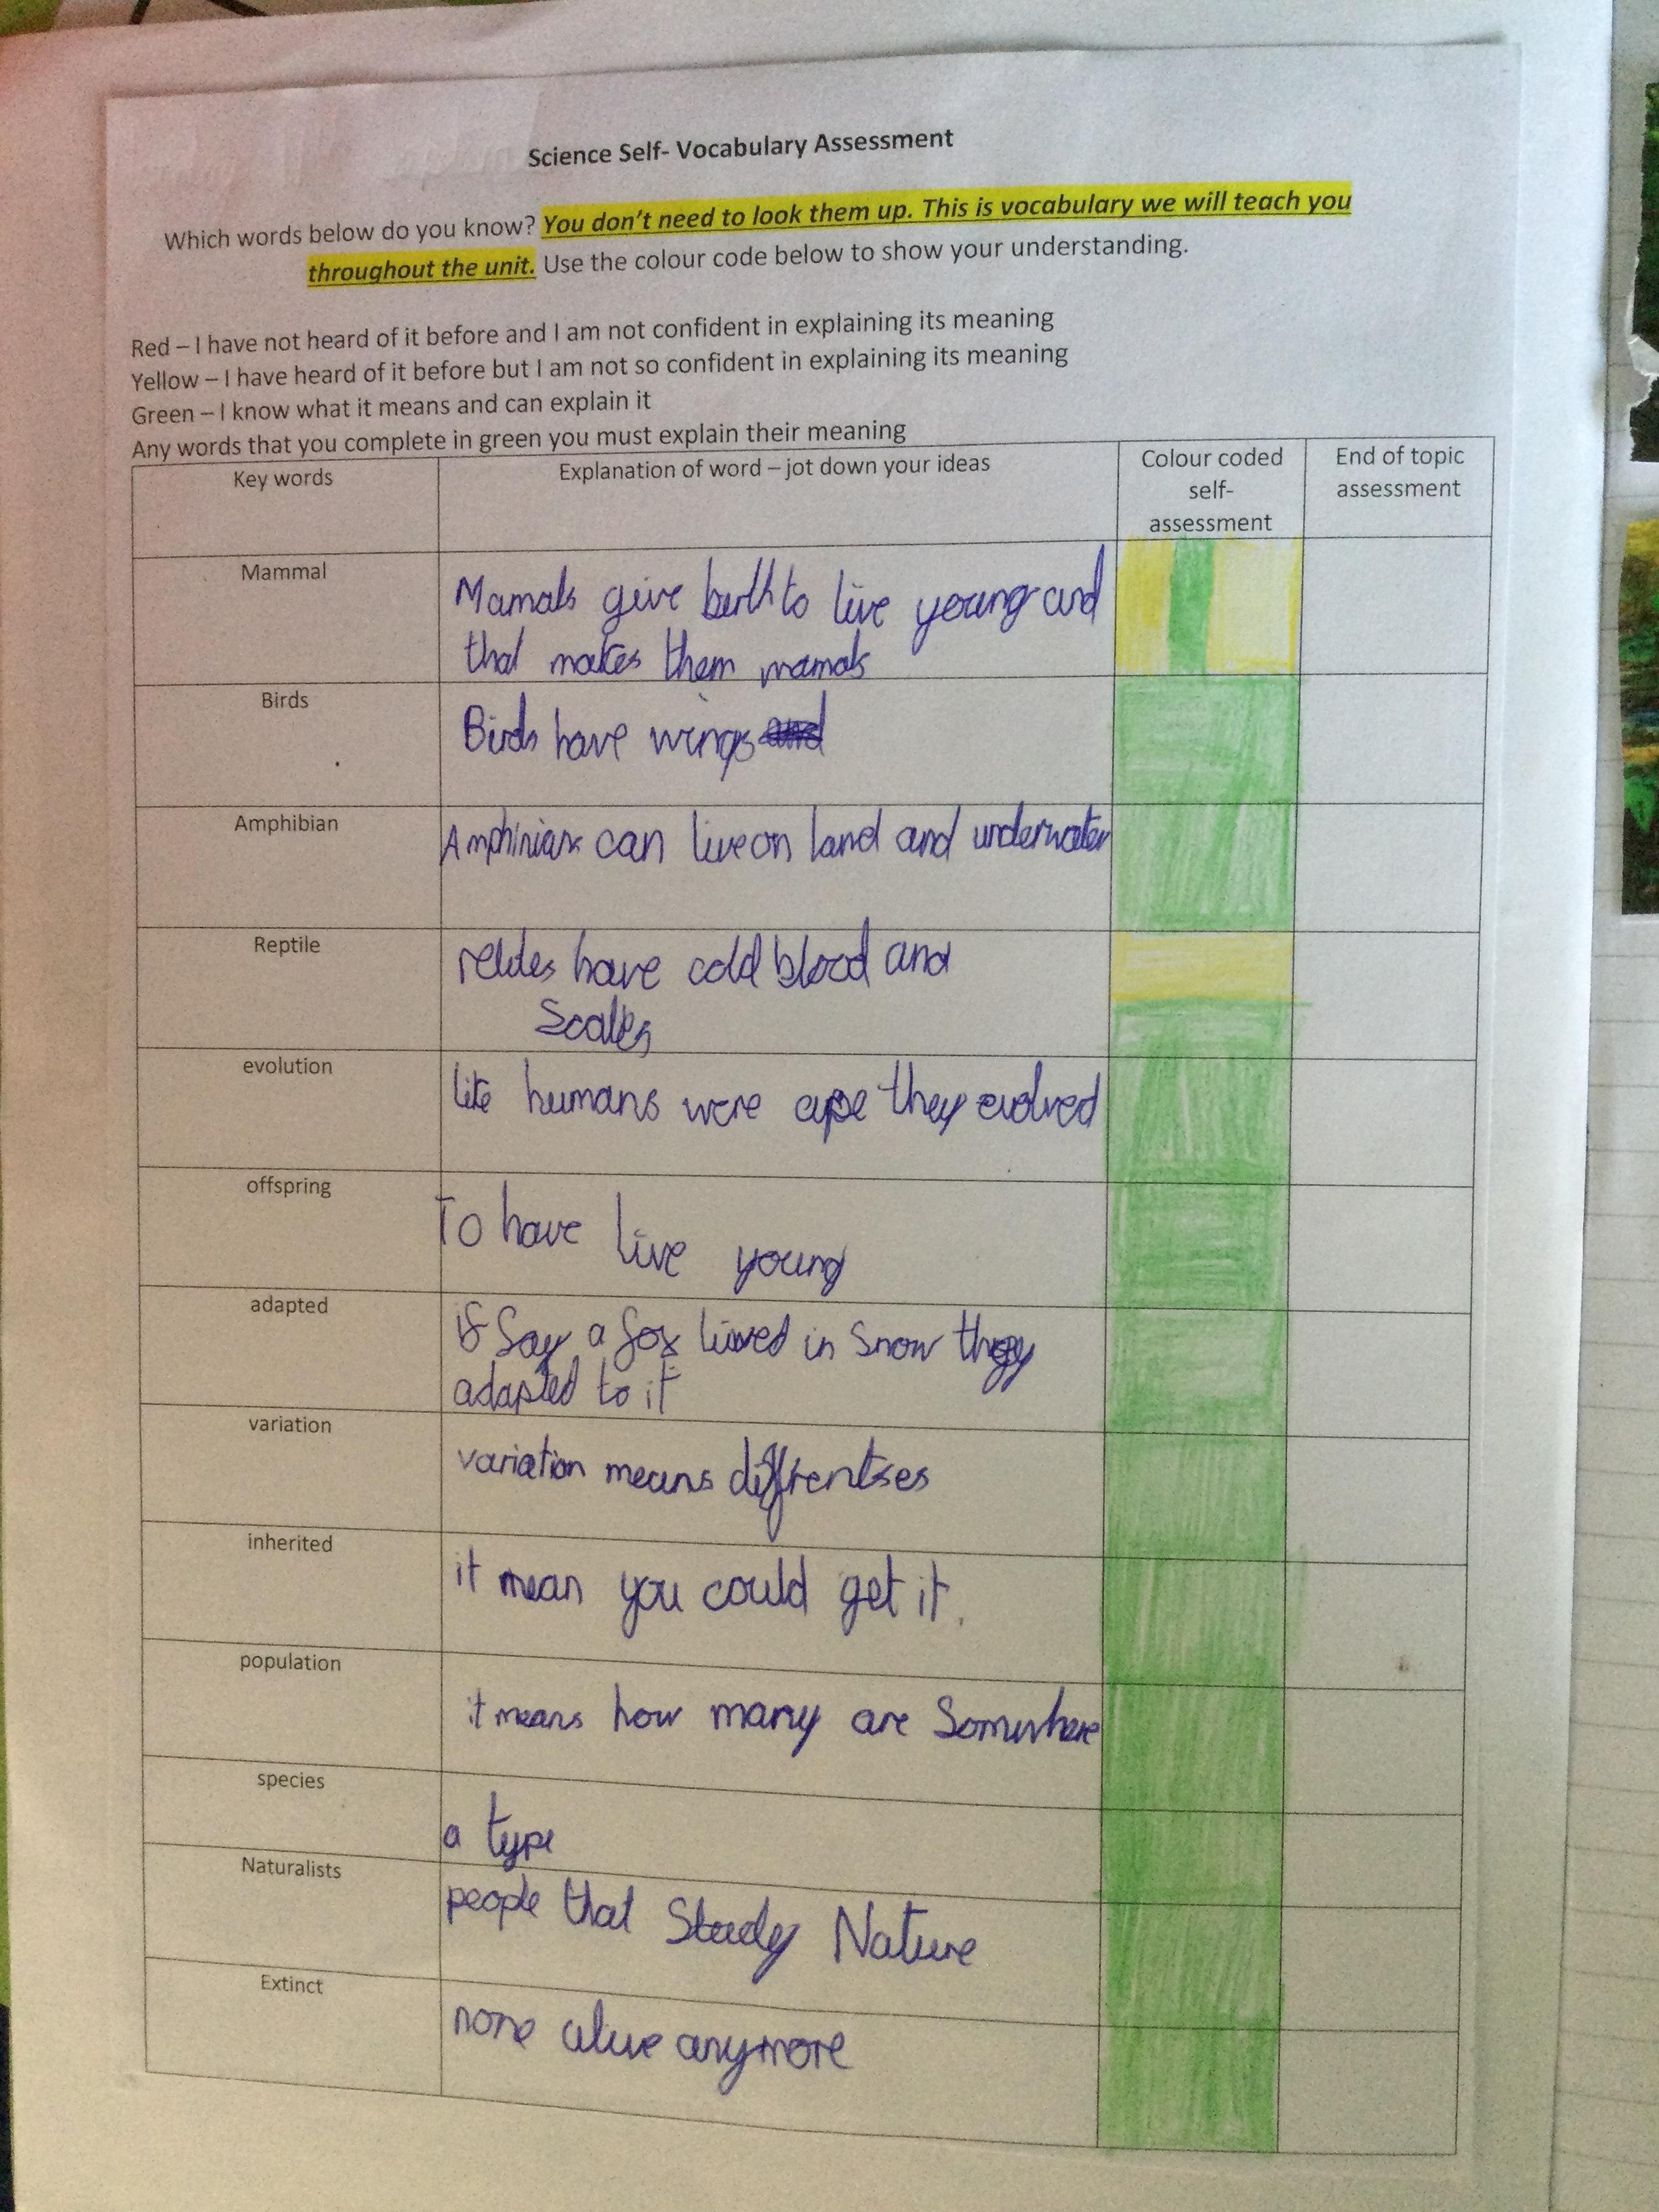 Science Self- Vocabulary Assessment
Which words below do you know? You don't need to look them up. This is vocabulary we will teach you
throughout the unit. Use the colour code below to show your understanding.
Red – I have not heard of it before and I am not confident in explaining its meaning
Yellow – I have heard of it before but I am not so confident in explaining its meaning
Green – I know what it means and can explain it
Any words that you complete in green you must explain their meaning
Key words
Explanation of word – jot down your ideas
Colour coded
self-
assessment
End of topic
assessment
Mammal
Mamals give berth to live young and
that makes them mamals
Birds
Birds have wings
Amphibian
Amphinians can live on land and underwater
Reptile
have cold blood and
Scales
evolution
like humans were ape they evolved
offspring
To have live young
adapted
if Say a fox lived in Snow they
adapted to it
variation
variation means diffrentses
inherited
it mean you could get it.
population
it means how many are Somewhere
species
a type
Naturalists
people that Study Nature
Extinct
none alive anymore